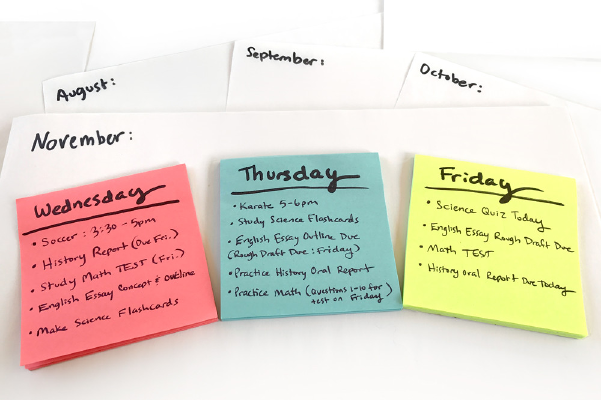 August:
September:
October:
November:
Wednesday
• Soccer: 3:30-5pm
• History Report (Due Fri.)
• Study Math TEST (Fri.)
• English Essay Concept & Outline
• Make Science Flashcards
Thursday
• Karate 5-6pm
• Study Science Flashcards
• English Essay Outline Due
(Rough Draft Due: Friday)
• Practice History Oral Report
• Practice Math (Questions 1-10 for
test on Friday)
Friday
• Science Quiz Today
• English Essay Rough Draft Due
• Math TEST
• History Oral Report Due Today